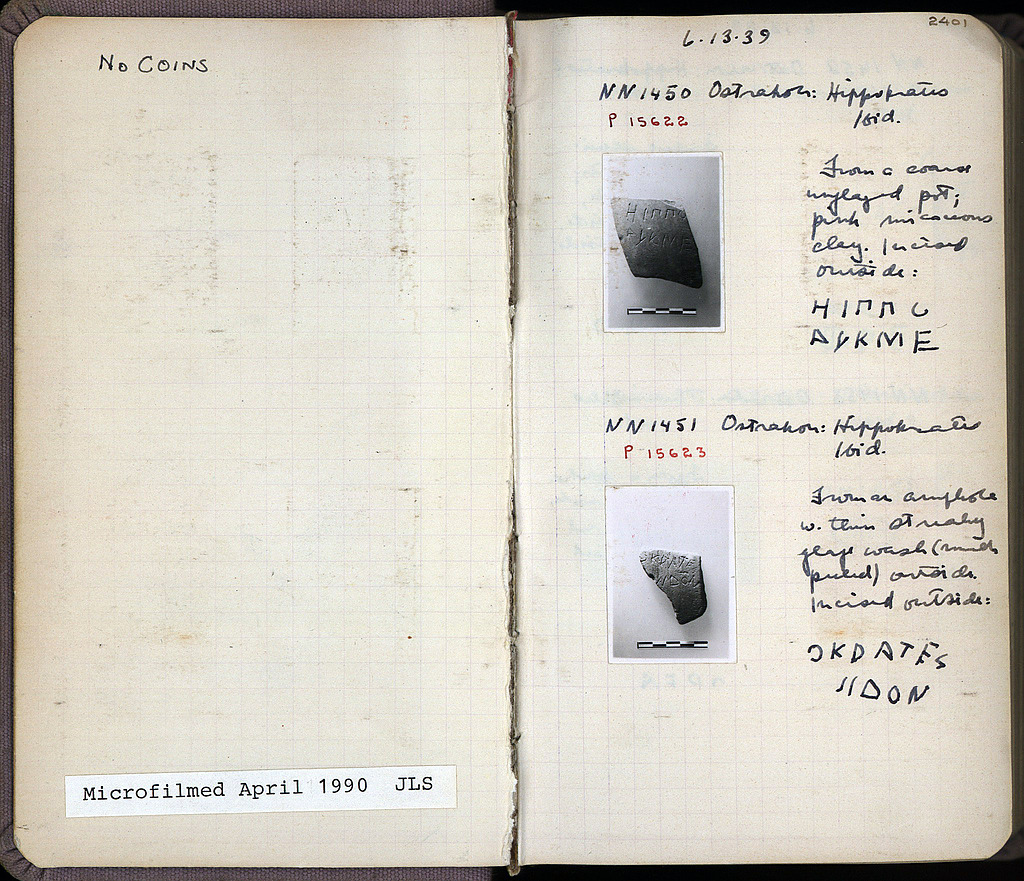 No COINS
Microfilmed April 1990 JLS
2401
6.13.39
NN1450 Ostrakon: Hippokrates
P 15622
Ibid.
From a coarse
unglazed pot;
pink micaceous
clay. Incised
outside:
HIΠΠ
KME
HIΠΠ
KME
NN1451 Ostrakon: Hippokrates
P 15623
Ibid.
From an amphora
w. thin streaky
glaze wash (much
peeled) outside.
Incised outside:
KDATES
DON